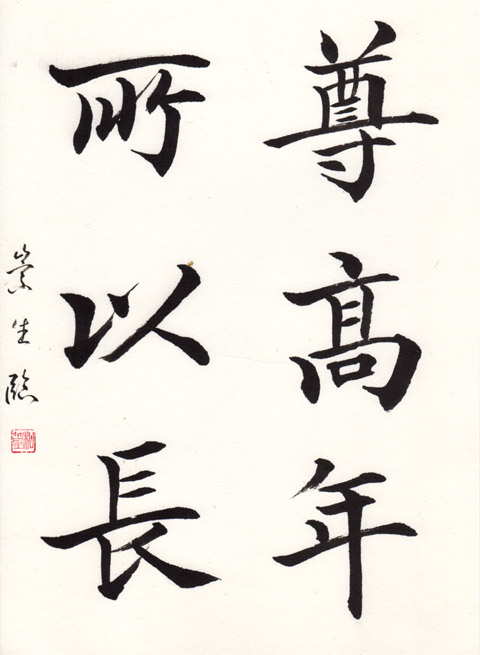 尊高年
所以長
崇生臨